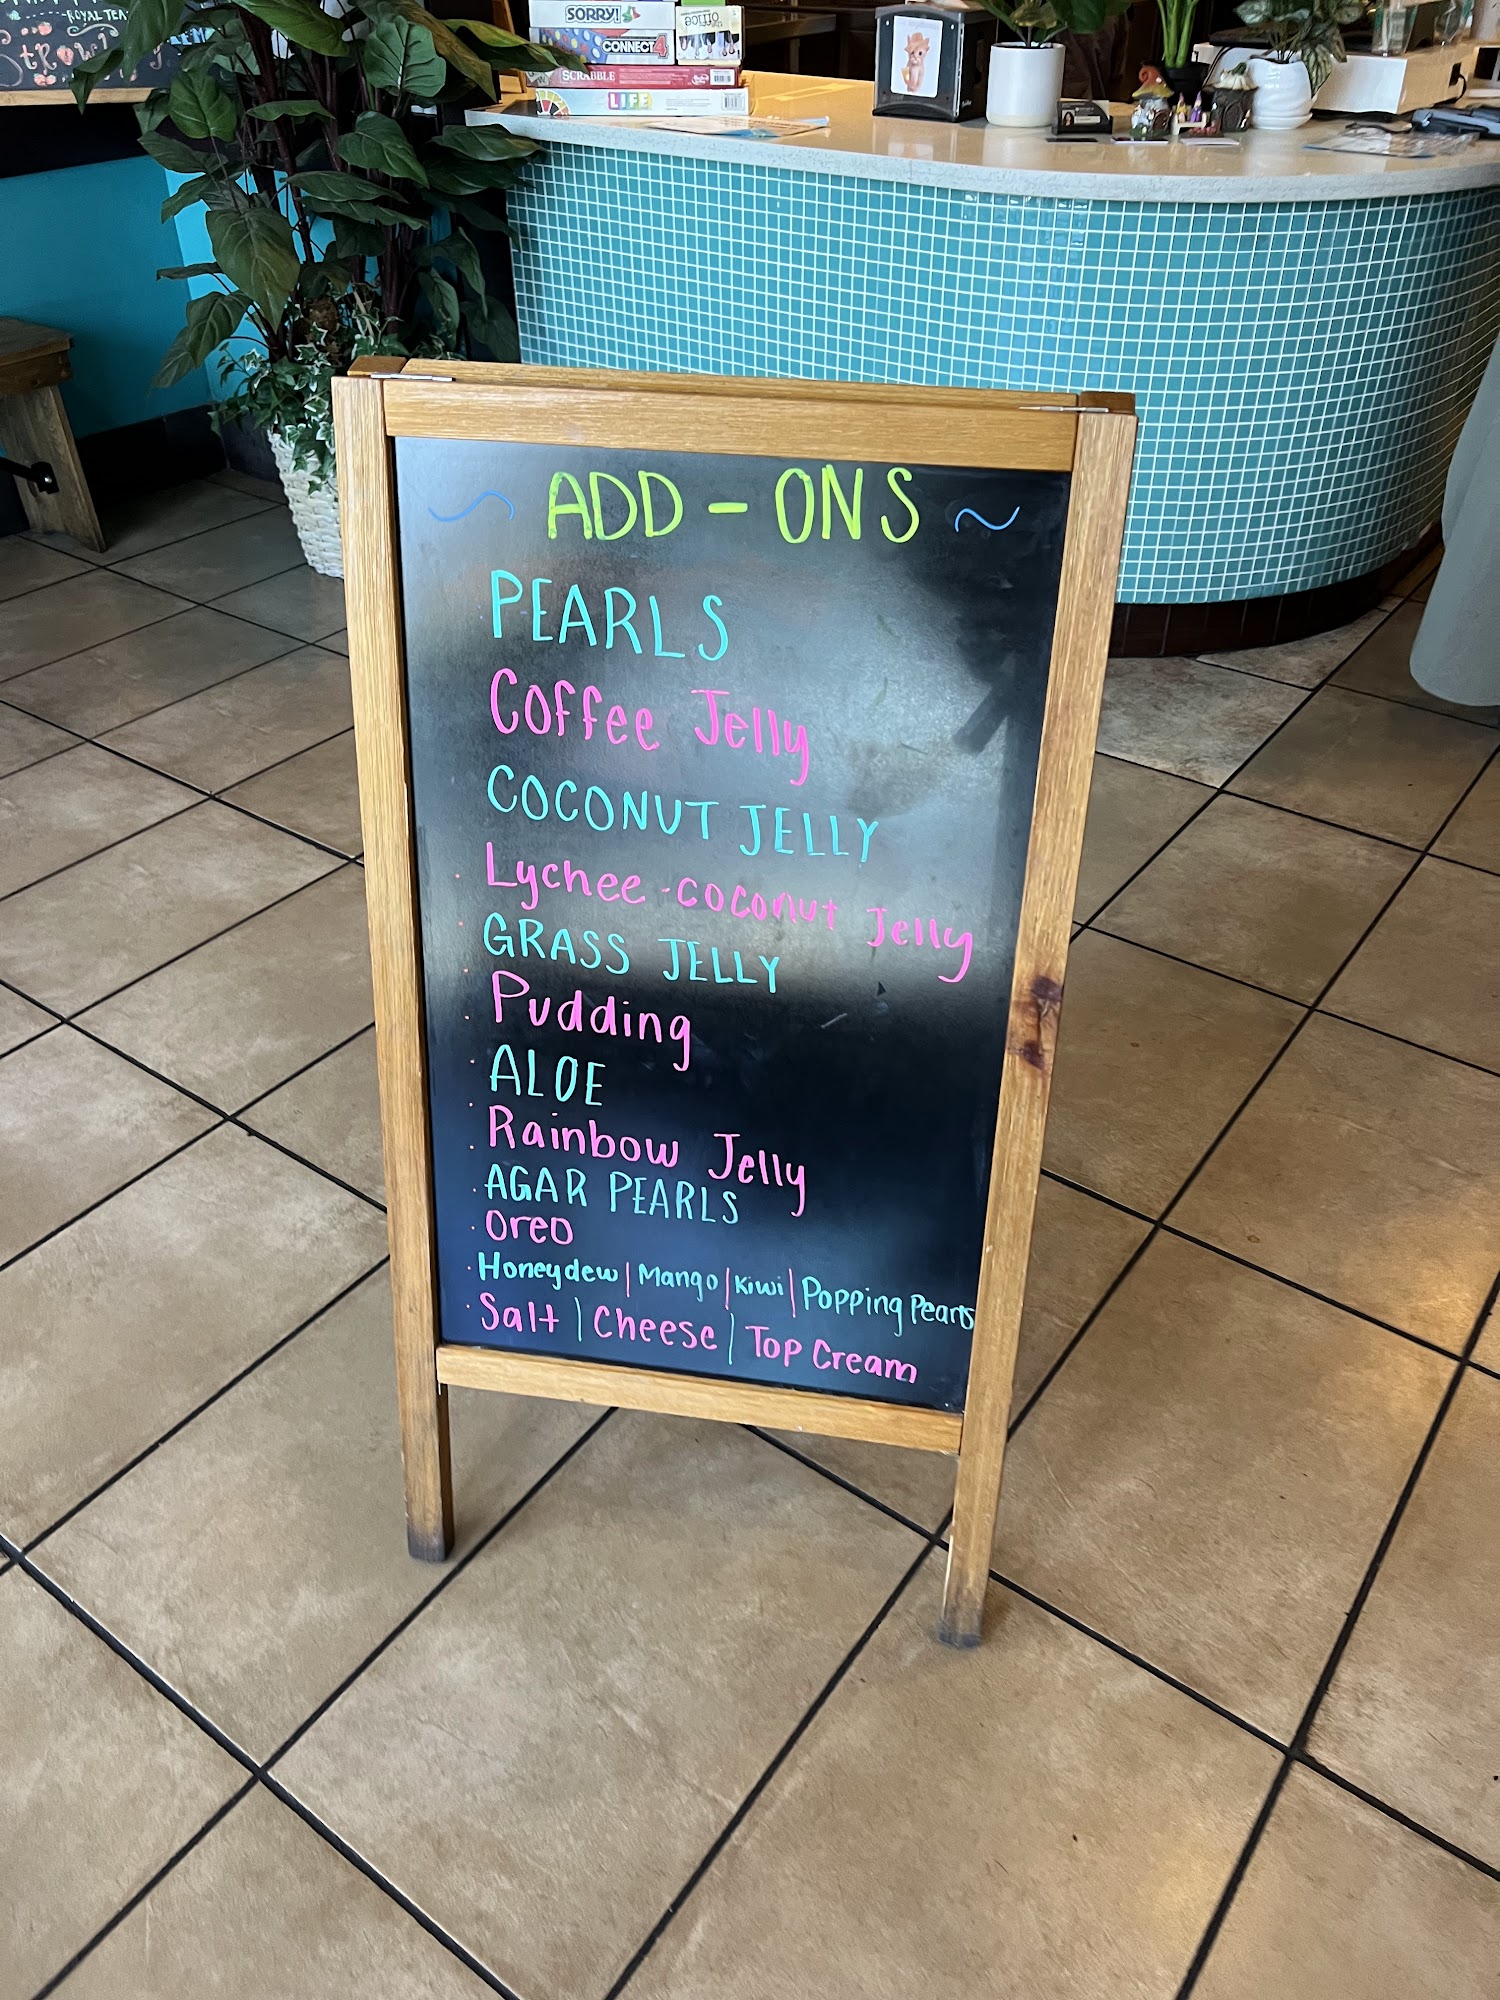 ROYAL TEA
SORRY!
CONNECT 4
office
SCRABBLE
LIFE
~ ADD-ONS ~
PEARLS
Coffee Jelly
COCONUT JELLY
· Lychee-coconut Jelly
· GRASS JELLY
· Pudding
· ALOE
· Rainbow Jelly
· AGAR PEARLS
· Oreo
· Honeydew | Mango | Kiwi | Popping Pearls
· Salt | Cheese | Top Cream